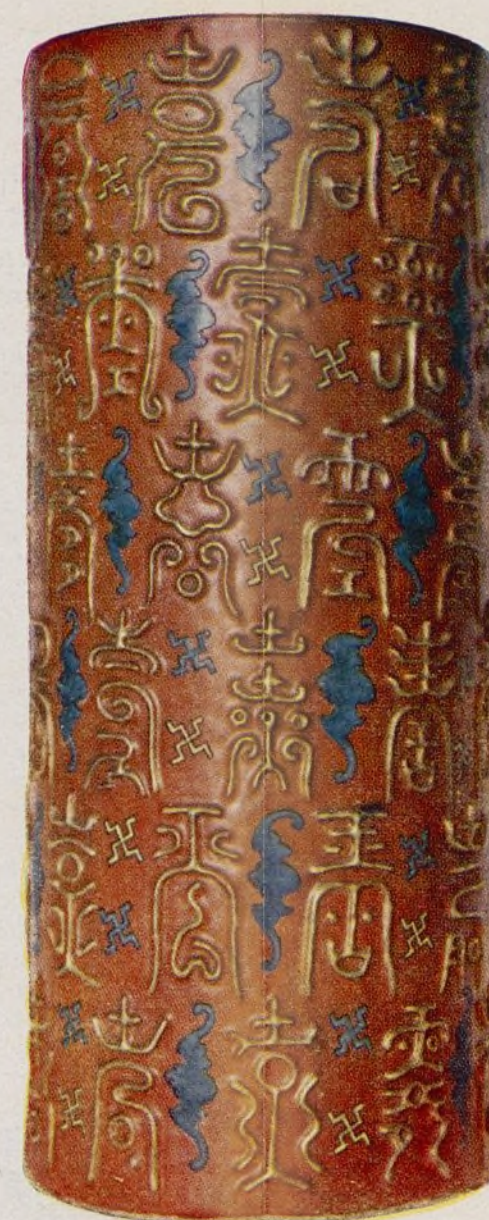 壽 壽 壽 壽
壽 壽 壽
壽 壽 壽 壽
壽 壽 壽
壽 壽 壽 壽
壽 壽 壽